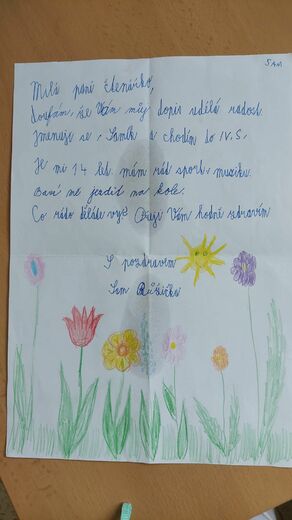 SAM
Milá paní čtenářko,
doufám, že Vám můj dopis udělá radost.
Jmenuje se, Samík a chodím do IV.S.
Je mi 14 let. mám rád sport, muziku.
Baví mě jezdit na kole.
Co ráda děláte vy? Přeji Vám hodně zdravím
S pozdravem
Sam Růžička